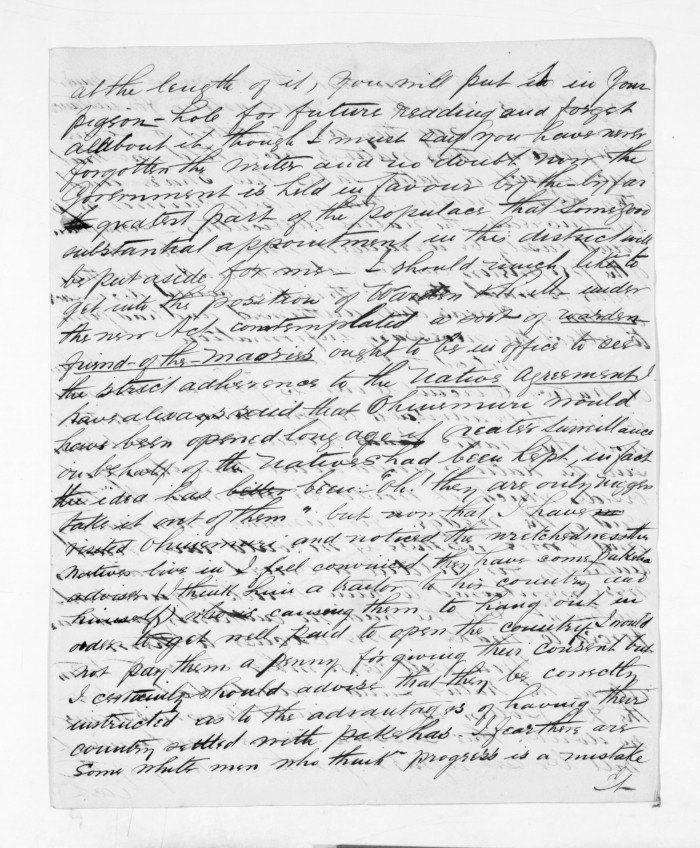 at the length of it, you will put it in your
pigeon-hole for future reading and forget
all about it though I must say you have never
forgotten the writer and no doubt now the
Government is held in favour by the by far
greatest part of the populace that some good
substantial appointment in this district will
be put aside for me - I should much like to
get into the position of Warden under
the new Act contemplated a sort of warden
friend-of-the-maories ought to be in office to see
the strict adherence to the Native Agreement I
have always said that Ohinemuri would
have been opened long ago if greater surveillance
on behalf of the Natives had been kept, in fact
the idea has been "Oh! they are only niggers
take it out of them" but now that I have
visited Ohinemuri and noticed the wretchedness the
Natives live in I feel convinced they have some Pakeha
adviser (I think him a traitor to his country and
himself) who is causing them to hang out in
order to get well paid to open the country. I would
not pay them a penny for giving their consent but
I certainly should advise that they be correctly
instructed as to the advantages of having their
country settled with pakehas. I fear there are
some white men who think progress is a mistake